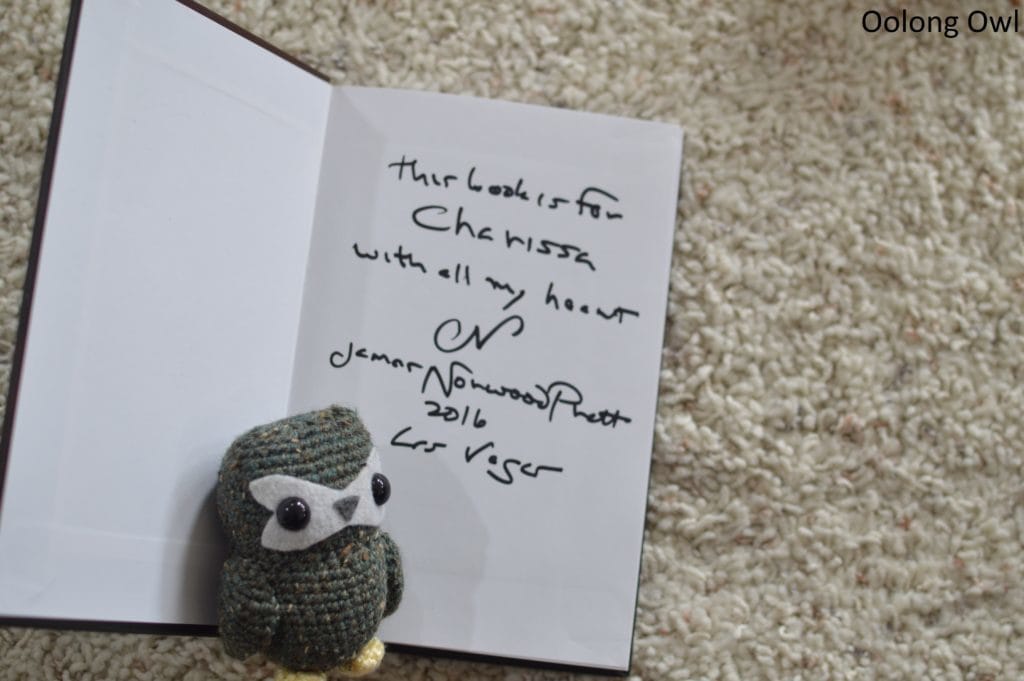 Oolong Owl
this book is for
Charissa
with all my heart
N
James Norwood Pratt
2016
Las Vegas